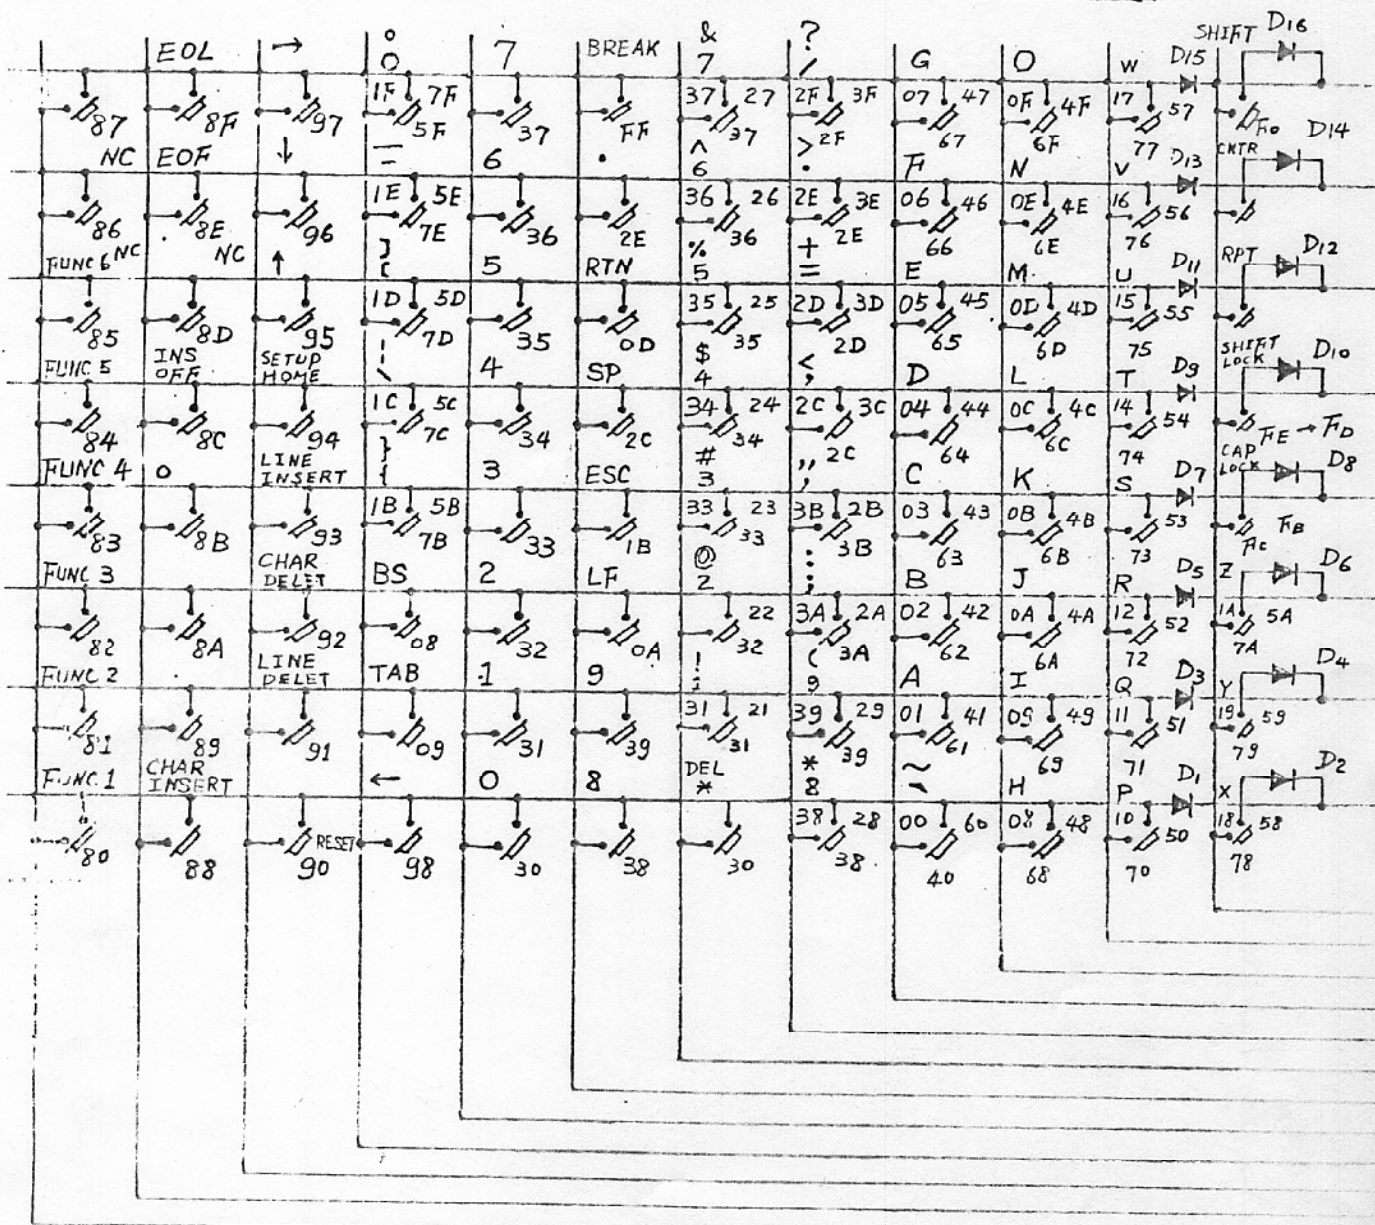 SHIFT D16
EOL → ° 0 7 BREAK & 7 ? / G O W D15
87 8F 97 1F 7F 5F 37 FF 37 27 37 2F 3F 2F 07 47 67 0F 4F 6F 17 57 77 F0 D14
NC EOF ↓ 6 . ^ 6 > . F N V D13 CNTR
86 8E 96 1E 5E 7E 36 2E 36 26 36 2E 3E 2E 06 46 66 0E 4E 6E 16 56 76
FUNC 6 NC NC ↑ ] [ 5 RTN % 5 + = E M U D11 RPT D12
85 8D 95 1D 5D 7D 35 0D 35 25 35 2D 3D 2D 05 45 65 0D 4D 6D 15 55 75
FUNC 5 INS OFF SETUP HOME ¦ \ 4 SP $ 4 < , D L T D9 SHIFT LOCK D10
84 8C 94 1C 5C 7C 34 2C 34 24 34 2C 3C 2C 04 44 64 0C 4C 6C 14 54 74 FE → FD
FUNC 4 0 LINE INSERT } { 3 ESC # 3 ,, , C K S D7 CAP LOCK D8
83 8B 93 1B 5B 7B 33 1B 33 23 33 3B 2B 3B 03 43 63 0B 4B 6B 53 73 FB FC
FUNC 3 CHAR DELET BS 2 LF @ 2 : ; B J R D5 Z D6
82 8A 92 08 32 0A 22 32 3A 2A 3A 02 42 62 0A 4A 6A 12 52 72 1A 5A 7A
FUNC 2 LINE DELET TAB 1 9 ! 1 ( 9 A I Q D3 Y D4
81 89 91 09 31 39 31 21 31 39 29 39 01 41 61 09 49 69 11 51 71 19 59 79
FUNC 1 CHAR INSERT ← 0 8 DEL * * 8 ~ ` H P D1 X D2
80 88 90 RESET 98 30 38 30 38 28 38 00 60 40 08 48 68 10 50 70 18 58 78